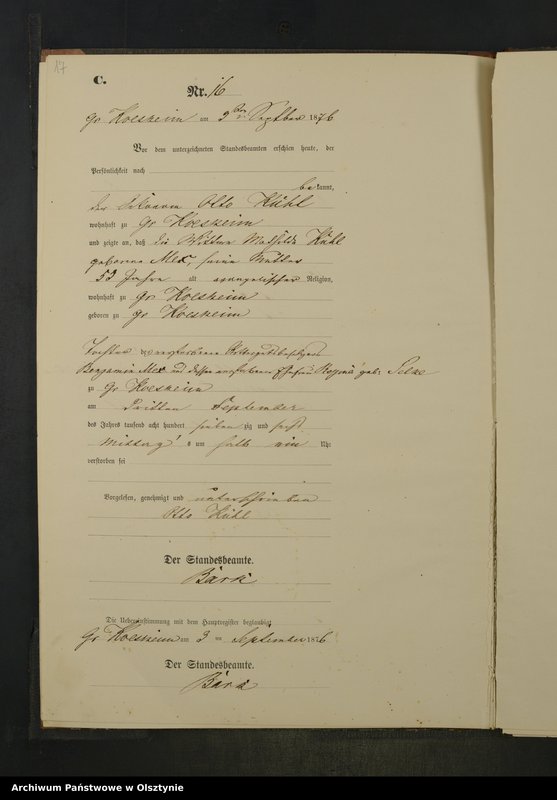 17
C.
Nr. 16
Gr Koelsheim am 3 ten September 1876
Vor dem unterzeichneten Standesbeamten erschien heute, der
Persönlichkeit nach
bekannt,
der Otto Kühl
wohnhaft zu Gr Koelsheim
und zeigte an, daß die Wittwe Mathilde Kühl
geborene Mex seine Mutter
53 Jahre alt evangelischer Religion,
wohnhaft zu Gr Koelsheim
geboren zu Gr Koelsheim
Tochter des verstorbenen Rittergutsbesitzers
Benjamin Mex und dessen verstorbenen Ehefrau Regine geb.
zu Gr Koelsheim
am dritten September
des Jahres tausend acht hundert siebenzig und sechs
Mittags um halb ein Uhr
verstorben sei
Vorgelesen, genehmigt und unterschrieben
Otto Kühl
Der Standesbeamte.
Die Uebereinstimmung mit dem Hauptregister beglaubigt
Gr Koelsheim am 3 ten September 1876
Der Standesbeamte.
Archiwum Państwowe w Olsztynie